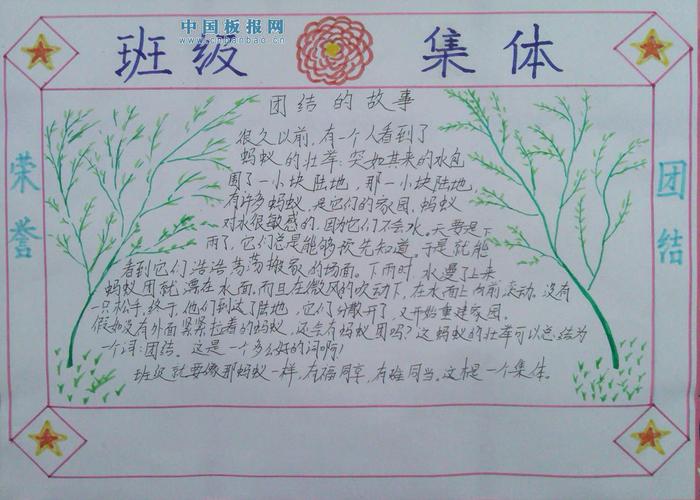 中国板报网
www.cnbanbao.cn
班级 集体
荣誉
团结
团结的故事
很久以前,有一个人看到了
蚂蚁的壮举:突如其来的水包
围了一小块陆地,那一小块陆地,
有许多蚂蚁,是它们的家园,蚂蚁
对水很敏感的,因为它们不会水。天要是下
雨了,它们总是能够预先知道。于是就能
看到它们浩浩荡荡搬家的场面。下雨时,水漫了上来
蚂蚁团就漂在水面,而且在微风的吹动下,在水面上向前滚动,没有
一只松手,终于,他们到达了陆地,它们分散开了,又开始重建家园。
假如没有外面紧紧拉着的蚂蚁,还会有蚂蚁团吗?这蚂蚁的壮举可以总结为
一个词:团结。这是一个多么好的词啊!
班级就要像那蚂蚁一样,有福同享,有难同当。这才是一个集体。